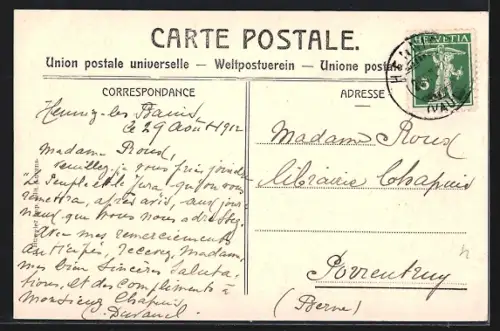 CARTE POSTALE.
Union postale universelle – Weltpostverein – Unione postale
CORRESPONDANCE
Henniez-les Bains
le 29 Août 1912
Madame Roux,
veuillez, je vous prie, joindre
le Peuple et le Jura, qu'on vous
remettra, après avis, aux jour-
naux que vous nous adressez.
Avec mes remerciements
recevez, Madame,
mes bien sincères saluta-
tions, et des compliments à
Monsieur Chapuis
ADRESSE
Madame Roux
librairie Chapuis
Porrentruy
(Berne)
HELVETIA
5
(VAUD)